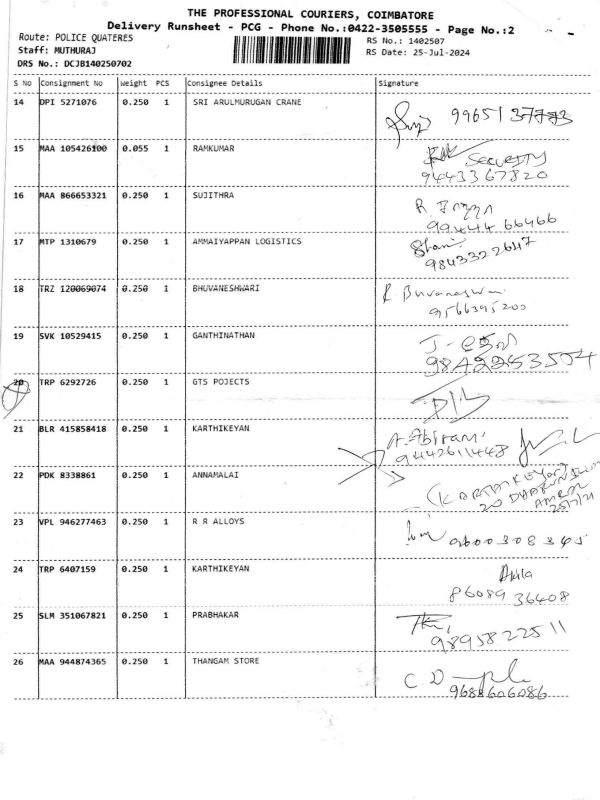 THE PROFESSIONAL COURIERS, COIMBATORE
Delivery Runsheet - PCG - Phone No.:0422-3505555 - Page No.:2
Route: POLICE QUATERES RS No.: 1402507
Staff: MUTHURAJ RS Date: 25-Jul-2024
DRS No.: DCJB140250702
S No Consignment No Weight PCS Consignee Details Signature
14 DPI 5271076 0.250 1 SRI ARULMURUGAN CRANE
15 MAA 105426100 0.055 1 RAMKUMAR SECURITY
9443367820
16 MAA 866653321 0.250 1 SUJITHRA R.
99444 66466
17 MTP 1310679 0.250 1 AMMAIYAPPAN LOGISTICS
9843322647
18 TRZ 120069074 0.250 1 BHUVANESHWARI R Buvaneswari
9566395200
19 SVK 10529415 0.250 1 GANTHINATHAN J-
20 TRP 6292726 0.250 1 GTS POJECTS
21 BLR 415858418 0.250 1 KARTHIKEYAN A. Abirami
9442611448
22 PDK 8338861 0.250 1 ANNAMALAI (KARTHIKEYAN)
20
23 VPL 946277463 0.250 1 R R ALLOYS 9600308345
24 TRP 6407159 0.250 1 KARTHIKEYAN
86089 36408
25 SLM 351067821 0.250 1 PRABHAKAR
9895822511
26 MAA 944874365 0.250 1 THANGAM STORE C D
9688606086